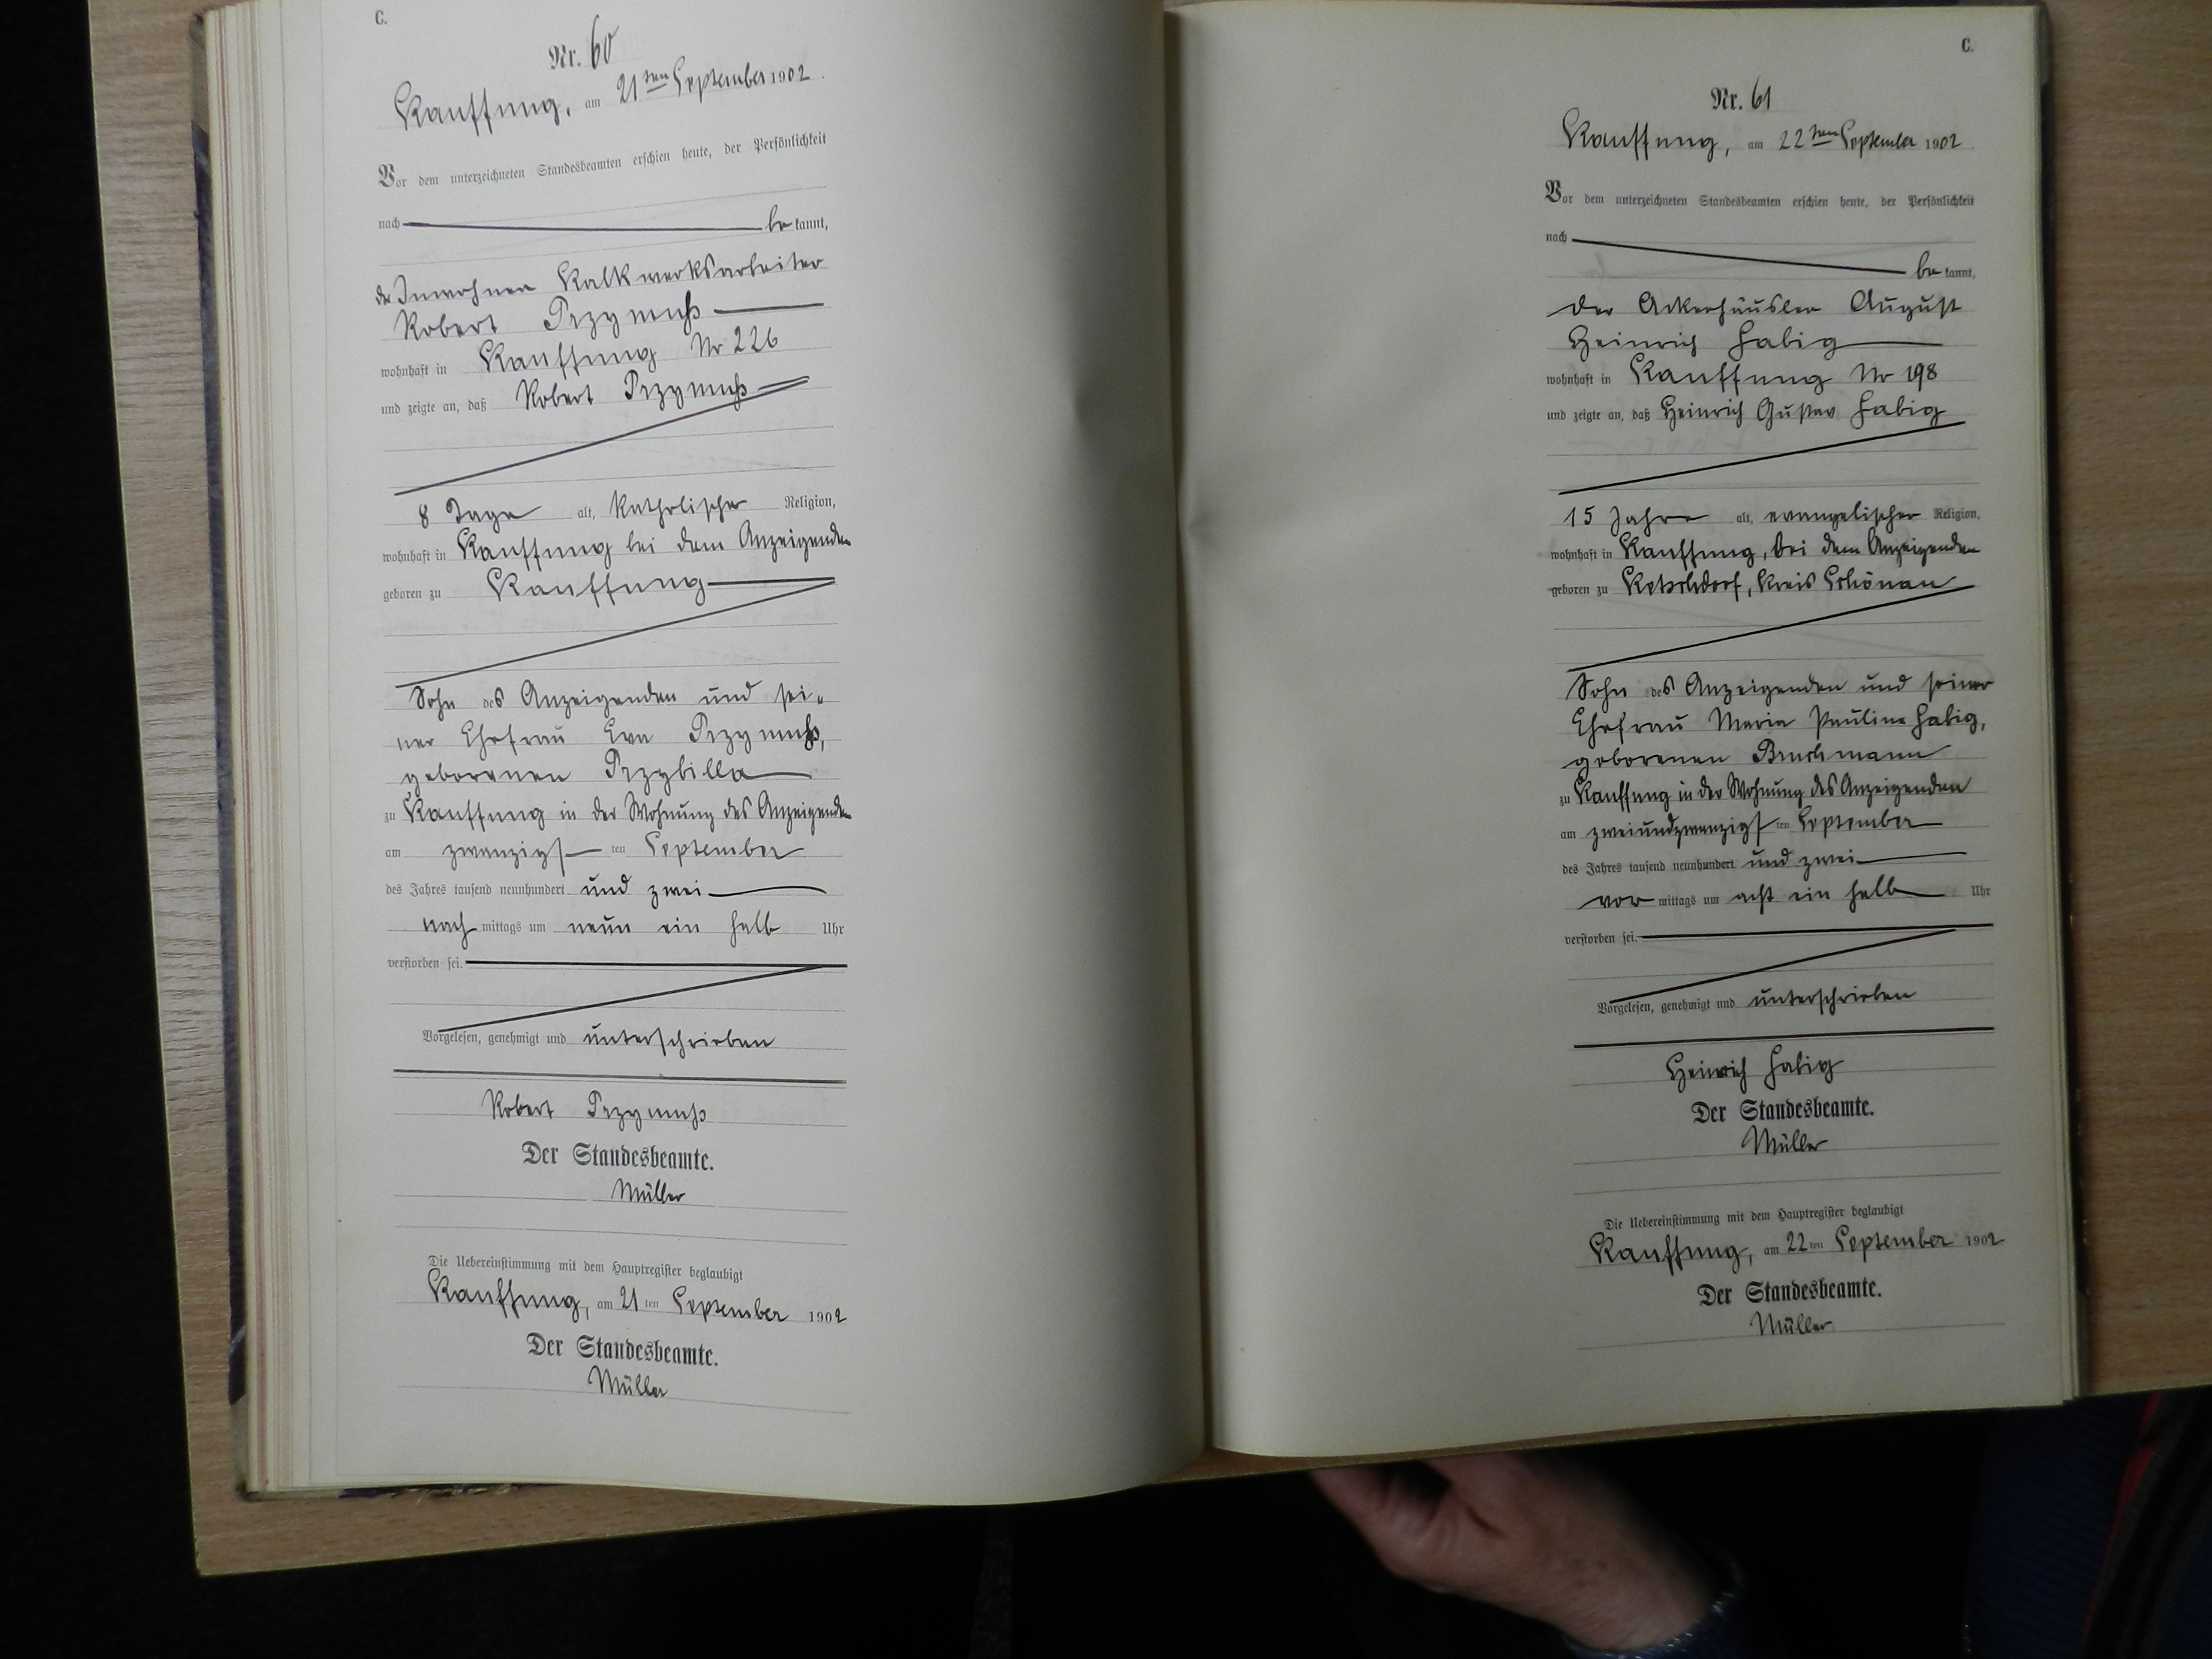 C.
Nr. 60
Kauffung, am 21ten September 1902.
Vor dem unterzeichneten Standesbeamten erschien heute, der Persönlichkeit
nach be kannt,
der Inwohner Kalkwerksarbeiter
Robert Przymuß
wohnhaft in Kauffung Nr 226
und zeigte an, daß Robert Przymuß
8 Tage alt, katholischer Religion,
wohnhaft in Kauffung bei dem Anzeigenden
geboren zu Kauffung
Sohn des Anzeigenden und sei-
ner Ehefrau Eva Przymuß,
geborenen Przybilla
zu Kauffung in der Wohnung des Anzeigenden
am zwanzigs ten September
des Jahres tausend neunhundert und zwei
nach mittags um neun ein halb Uhr
verstorben sei.
Vorgelesen, genehmigt und unterschrieben
Robert Przymuß
Der Standesbeamte.
Müller
Die Uebereinstimmung mit dem Hauptregister beglaubigt
Kauffung, am 21 ten September 1902
Der Standesbeamte.
Müller
C.
Nr. 61
Kauffung, am 22ten September 1902.
Vor dem unterzeichneten Standesbeamten erschien heute, der Persönlichkeit
nach
be kannt,
der Ackerhäusler August
Heinrich Habig
wohnhaft in Kauffung Nr 198
und zeigte an, daß Heinrich Gustav Habig
15 Jahre alt, evangelischer Religion,
wohnhaft in Kauffung, bei dem Anzeigenden
geboren zu Ketschdorf, Kreis Schönau
Sohn des Anzeigenden und seiner
Ehefrau Maria Pauline Habig,
geborenen Bruchmann
zu Kauffung in der Wohnung des Anzeigenden
am zweiundzwanzigs ten September
des Jahres tausend neunhundert und zwei
vor mittags um acht ein halb Uhr
verstorben sei.
Vorgelesen, genehmigt und unterschrieben
Heinrich Habig
Der Standesbeamte.
Müller
Die Uebereinstimmung mit dem Hauptregister beglaubigt
Kauffung, am 22 ten September 1902
Der Standesbeamte.
Müller